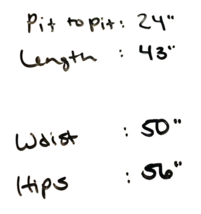 Pit to pit: 24"
Length : 43"
Waist : 50"
Hips : 56"